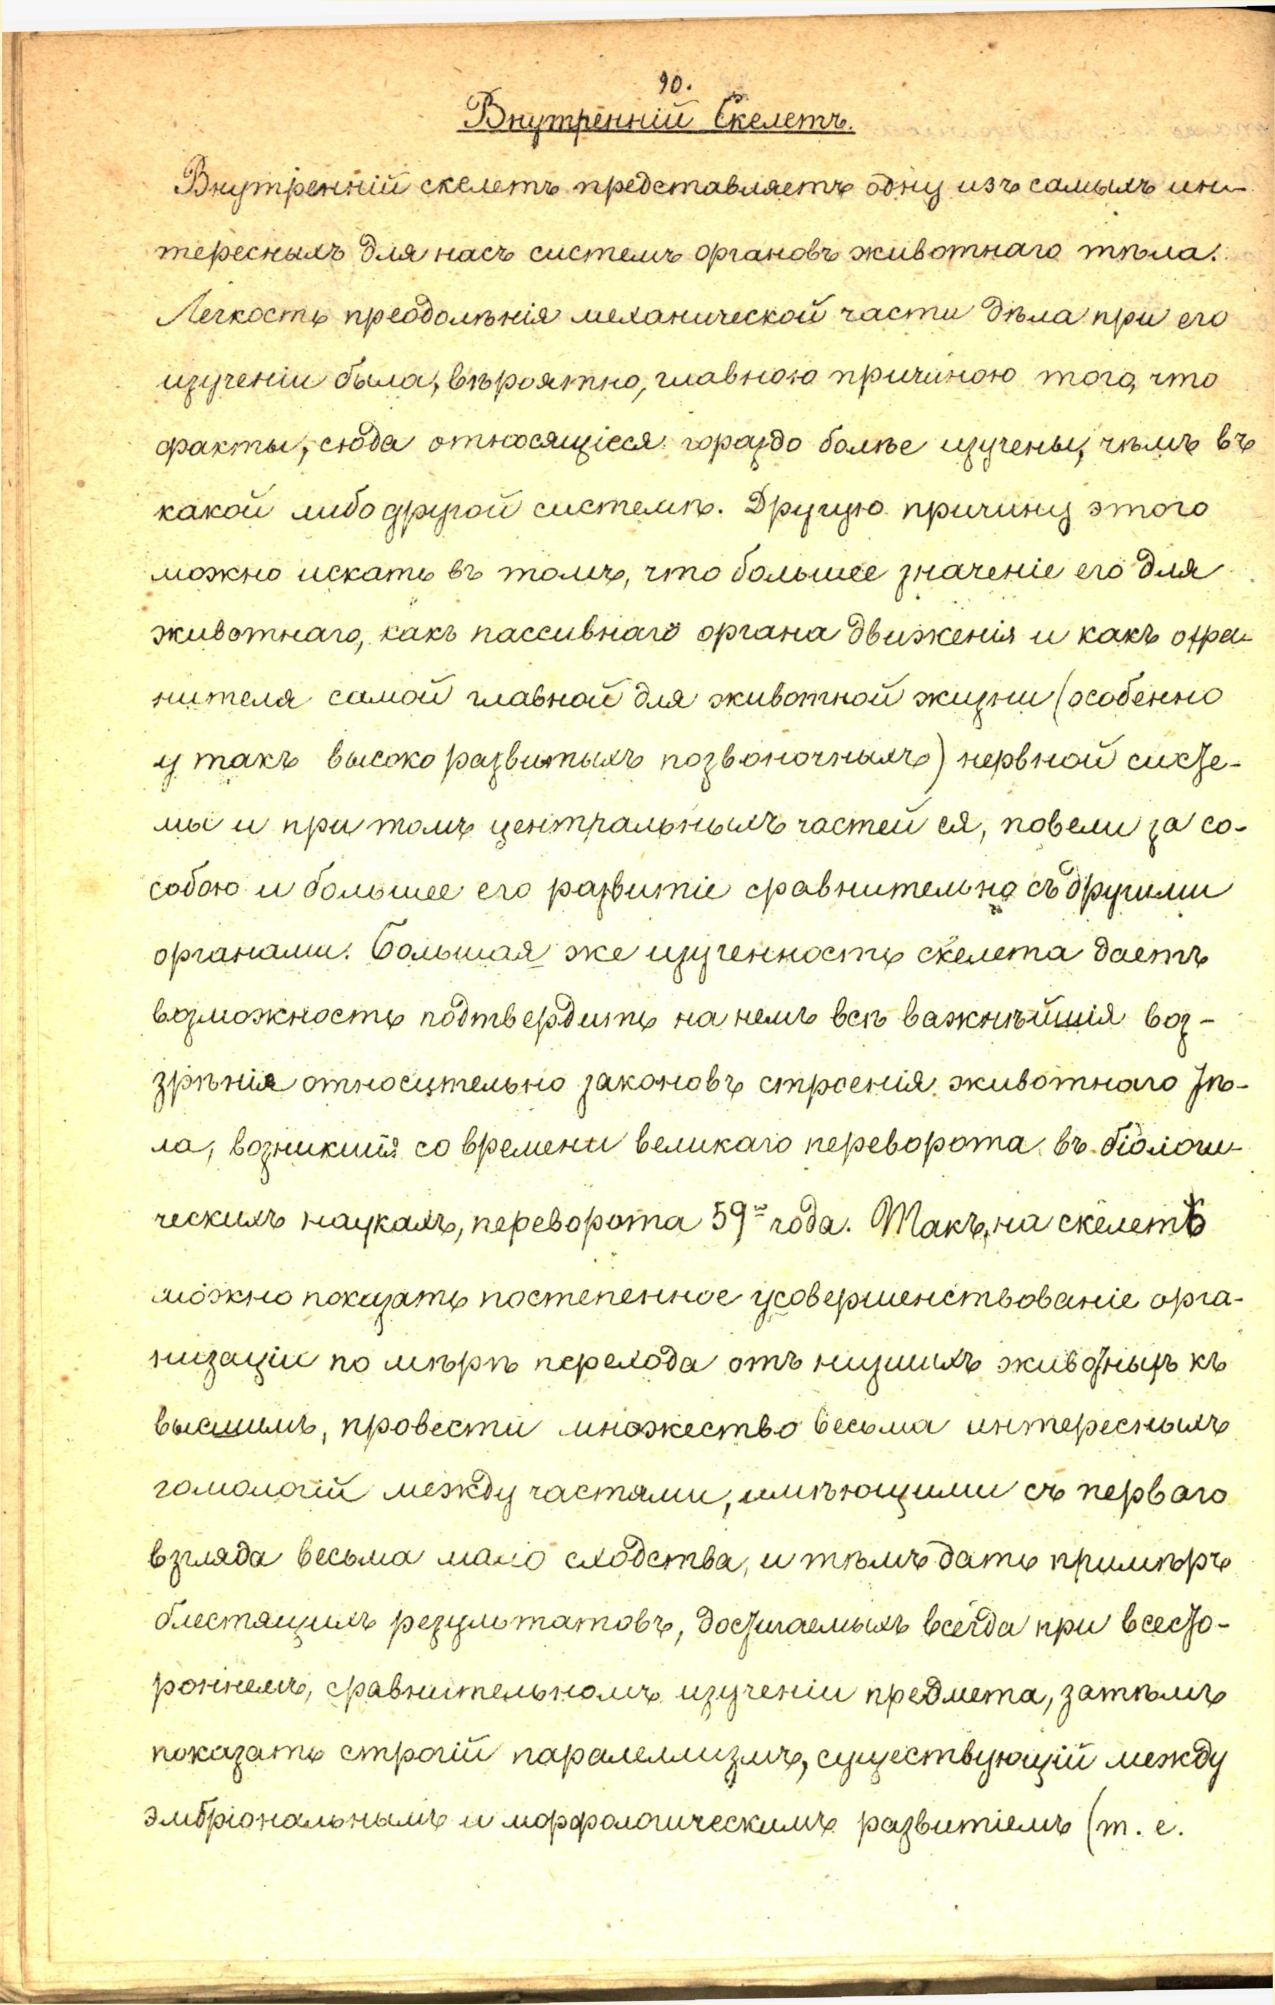 90.
Внутренній Скелетъ.
Внутренній скелетъ представляетъ одну изъ самыхъ ин-
тересныхъ для насъ системъ органовъ животнаго тѣла.
Легкость преодолѣнія механической части дѣла при его
изученіи была, вѣроятно, главною причиною того, что
факты, сюда относящіеся гораздо болѣе изучены, чѣмъ въ
какой либо другой системѣ. Другую причину этого
можно искать въ томъ, что большее значеніе его для
животнаго, какъ пассивнаго органа движенія и какъ охра-
нителя самой главной для животной жизни (особенно
у такъ высоко развитыхъ позвоночныхъ) нервной систе-
мы и при томъ центральныхъ частей ея, повели за со-
собою и большее его развитіе сравнительно съ другими
органами. Большая же изученность скелета даетъ
возможность подтвердить на немъ всѣ важнѣйшія воз-
зрѣнія относительно законовъ строенія животнаго тѣ-
ла, возникшія со времени великаго переворота въ біологи-
ческихъ наукахъ, переворота 59го года. Такъ, на скелетѣ
можно показать постепенное усовершенствованіе орга-
низаціи по мѣрѣ перехода отъ низшихъ животныхъ къ
высшимъ, провести множество весьма интересныхъ
гомологій между частями, имѣющими съ перваго
взгляда весьма мало сходства, и тѣмъ дать примѣръ
блестящихъ результатовъ, достигаемыхъ всегда при всесто-
роннемъ, сравнительномъ изученіи предмета, затѣмъ
показать строгій паралеллизмъ, существующій между
эмбріональнымъ и морфологическимъ развитіемъ (т. е.